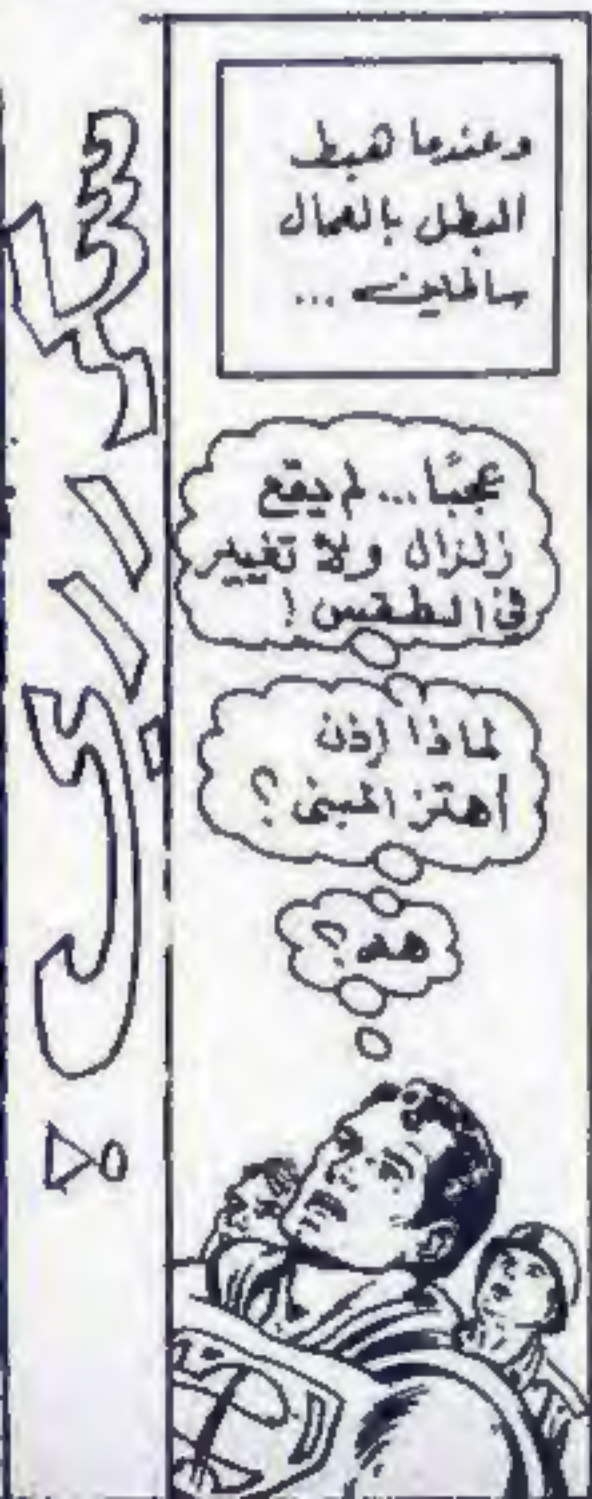 وعندما هبط
البطل بالعمال
سالمين...
عجبًا... لم يقع
زلزال ولا تغيير
في الطقس!
لماذا إذن
أهتز المبنى؟
هه؟